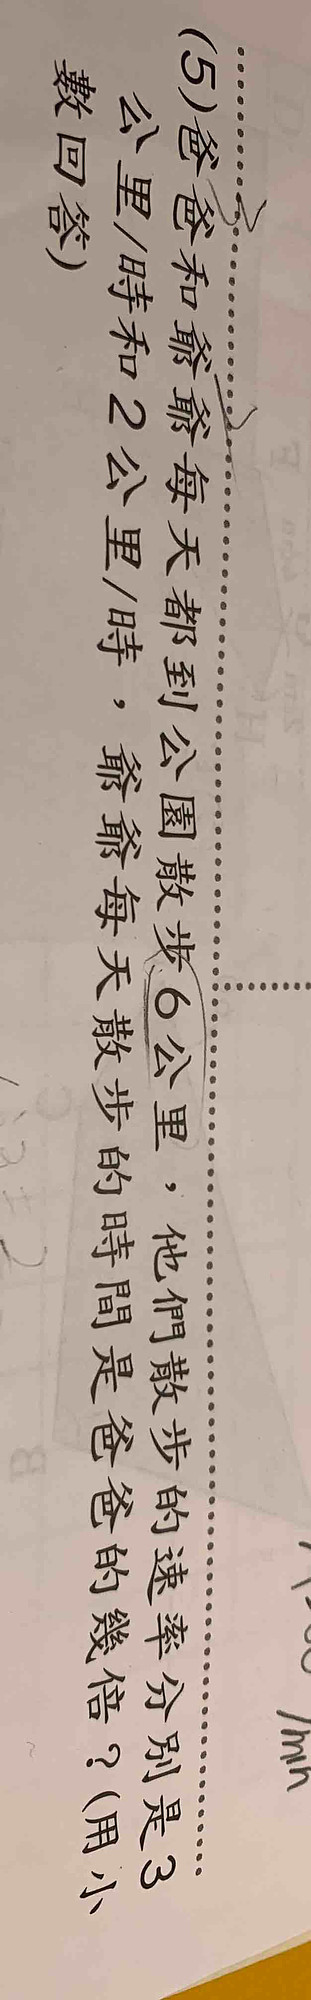 (5)爸爸和爺爺每天都到公園散步6公里，他們散步的速率分別是3
公里/時和2公里/時，爺爺每天散步的時間是爸爸的幾倍？(用小
數回答)
/min